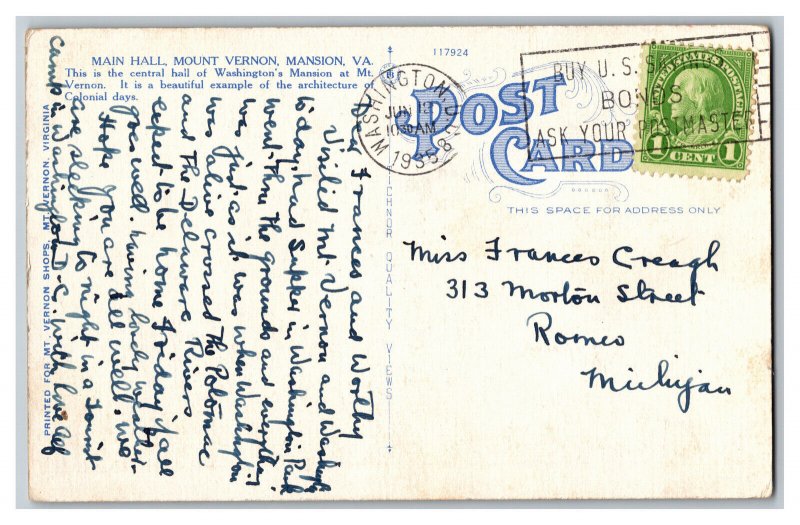 MAIN HALL, MOUNT VERNON, MANSION, VA.
This is the central hall of Washington's Mansion at Mt.
Vernon. It is a beautiful example of the architecture of
Colonial days.
Dear Frances and Worthy
Visitid Mt. Vernon and Washingto
today, had Supper in Washington Park
went thru the grounds and everything
was just as it was when Washington
was alive crossed The Potomac
and The Delaware Rivers
expect to be home Friday all
goes well. having lovely weather.
Hope you are all well. we
are sleeping to night in a Tourist
camp in Washington D.C. with love
PRINTED FOR MT. VERNON SHOPS, MT. VERNON, VIRGINIA
TICHNOR QUALITY VIEWS
117924
WASHINGTON, D.C.
JUN 12
10:30 AM
1935
BUY U. S. SAVINGS
BONDS
ASK YOUR POSTMASTER
UNITED STATES POSTAGE
1 CENT 1
POST
CARD
THIS SPACE FOR ADDRESS ONLY
Miss Frances Creagh
313 Morton Street
Romeo
Michigan